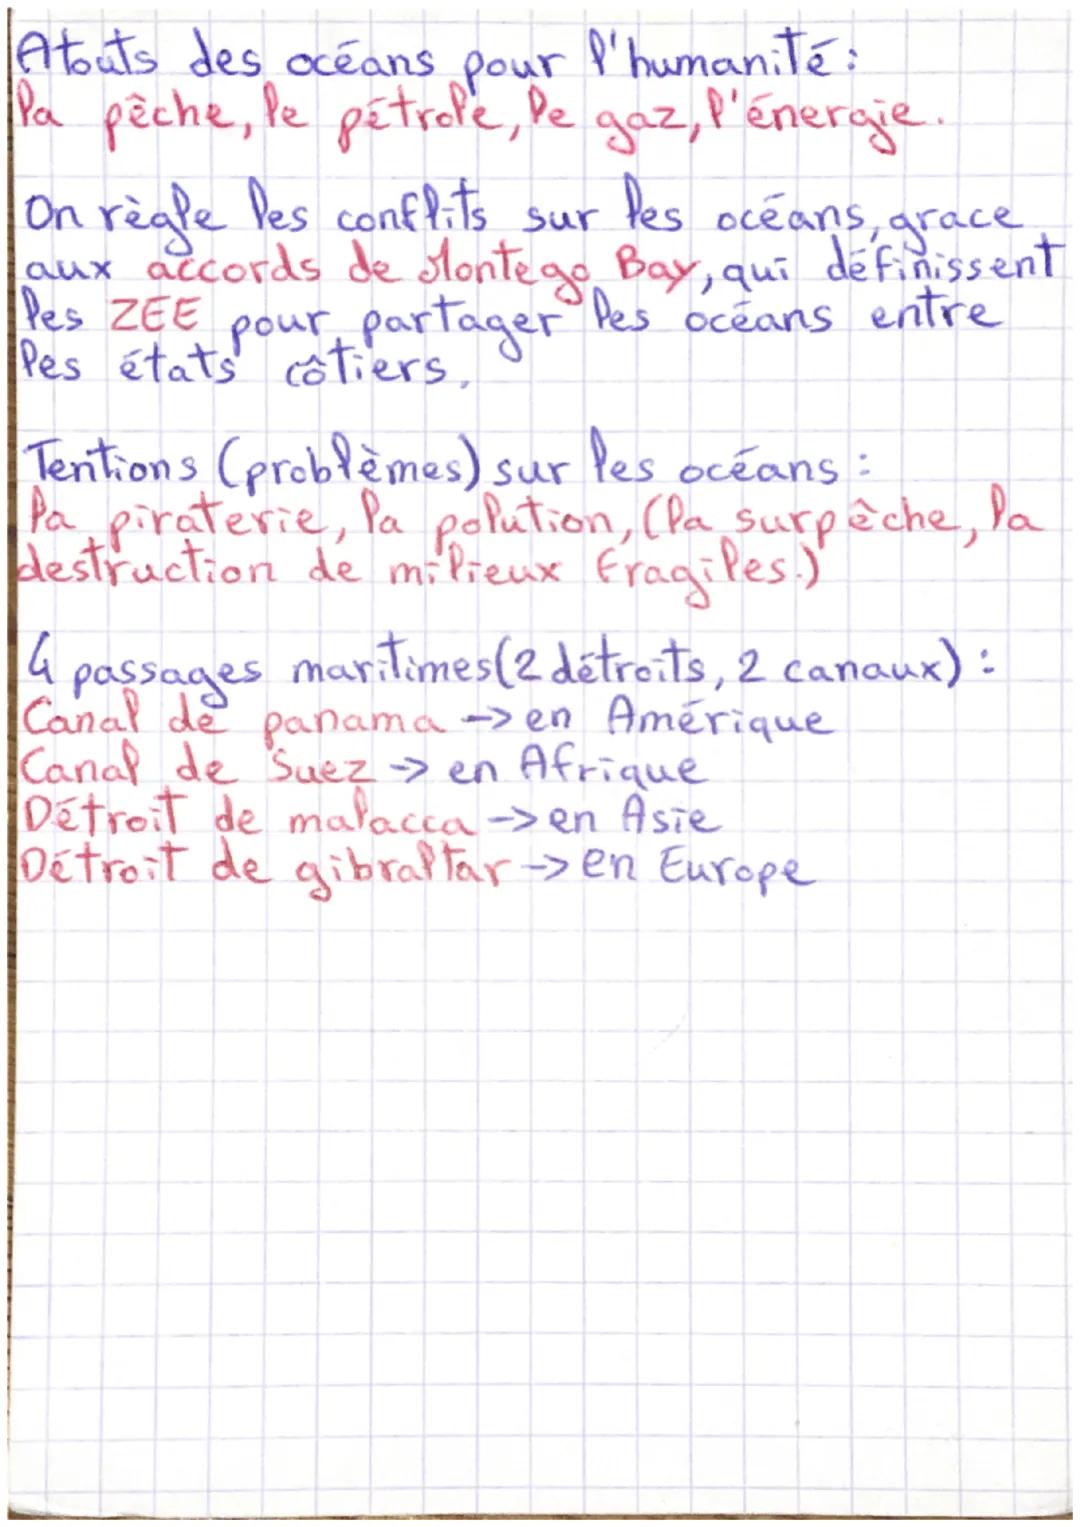 Atouts des océans pour l'humanité :
la pêche, le pétrole, le gaz, l'énergie.
On règle les conflits sur les océans, grace
aux accords de Montego Bay, qui définissent
les ZEE pour partager les océans entre
les états côtiers.
Tentions (problèmes) sur les océans :
la piraterie, la polution, (la surpêche, la
destruction de milieux fragiles.)
4 passages maritimes (2 détroits, 2 canaux) :
Canal de panama -> en Amérique
Canal de Suez -> en Afrique
Détroit de malacca -> en Asie
Détroit de gibraltar -> en Europe